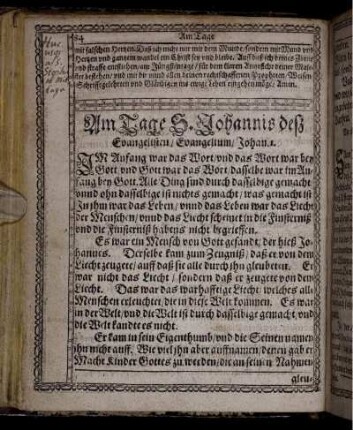 84 Am Tage
mit falschen Hertzen. Daß ich nicht nur mit dem Munde / sondern mit Mund vnd
Hertzen vnd gantzem wandel ein Christ sey vnd bleibe. Auff daß ich deines Zorns
Am Tage S. Johannis deß
Evangelisten / Evangelium / Johan. 1.
IM Anfang war das Wort / vnd das Wort war bey
Gott / vnd Gott war das Wort / dasselbe war im An-
fang bey Gott. Alle Ding sind durch dasselbige gemacht
vnnd ohn dasselbige ist nichts gemacht / was gemacht ist
In jhm war das Leben / vnnd das Leben war das Liecht
der Menschen / vnnd das Liecht scheinet in die Finsterniß
vnd die Finsterniß habens nicht begrieffen.
Es war ein Mensch von Gott gesandt / der hieß Jo-
hannes. Derselbe kam zum Zeugniß / daß er von dem
Liecht zeugete / auff daß sie alle durch jhn gleubeten. Er
war nicht das Liecht / sondern daß er zeugete von dem
Liecht. Das war das warhafftige Liecht / welches alle
Menschen erleuchtet / die in diese Welt kommen. Es war
in der Welt / vnd die Welt ist durch dasselbige gemacht / vnd
die Welt kandte es nicht.
Er kam in sein Eigenthumb / vnd die Seinen namen
jhn nicht auff. Wie viel jhn aber auffnamen / denen gab er
Macht Kinder Gottes zu werden / die an seinen Nahmen
gleu-